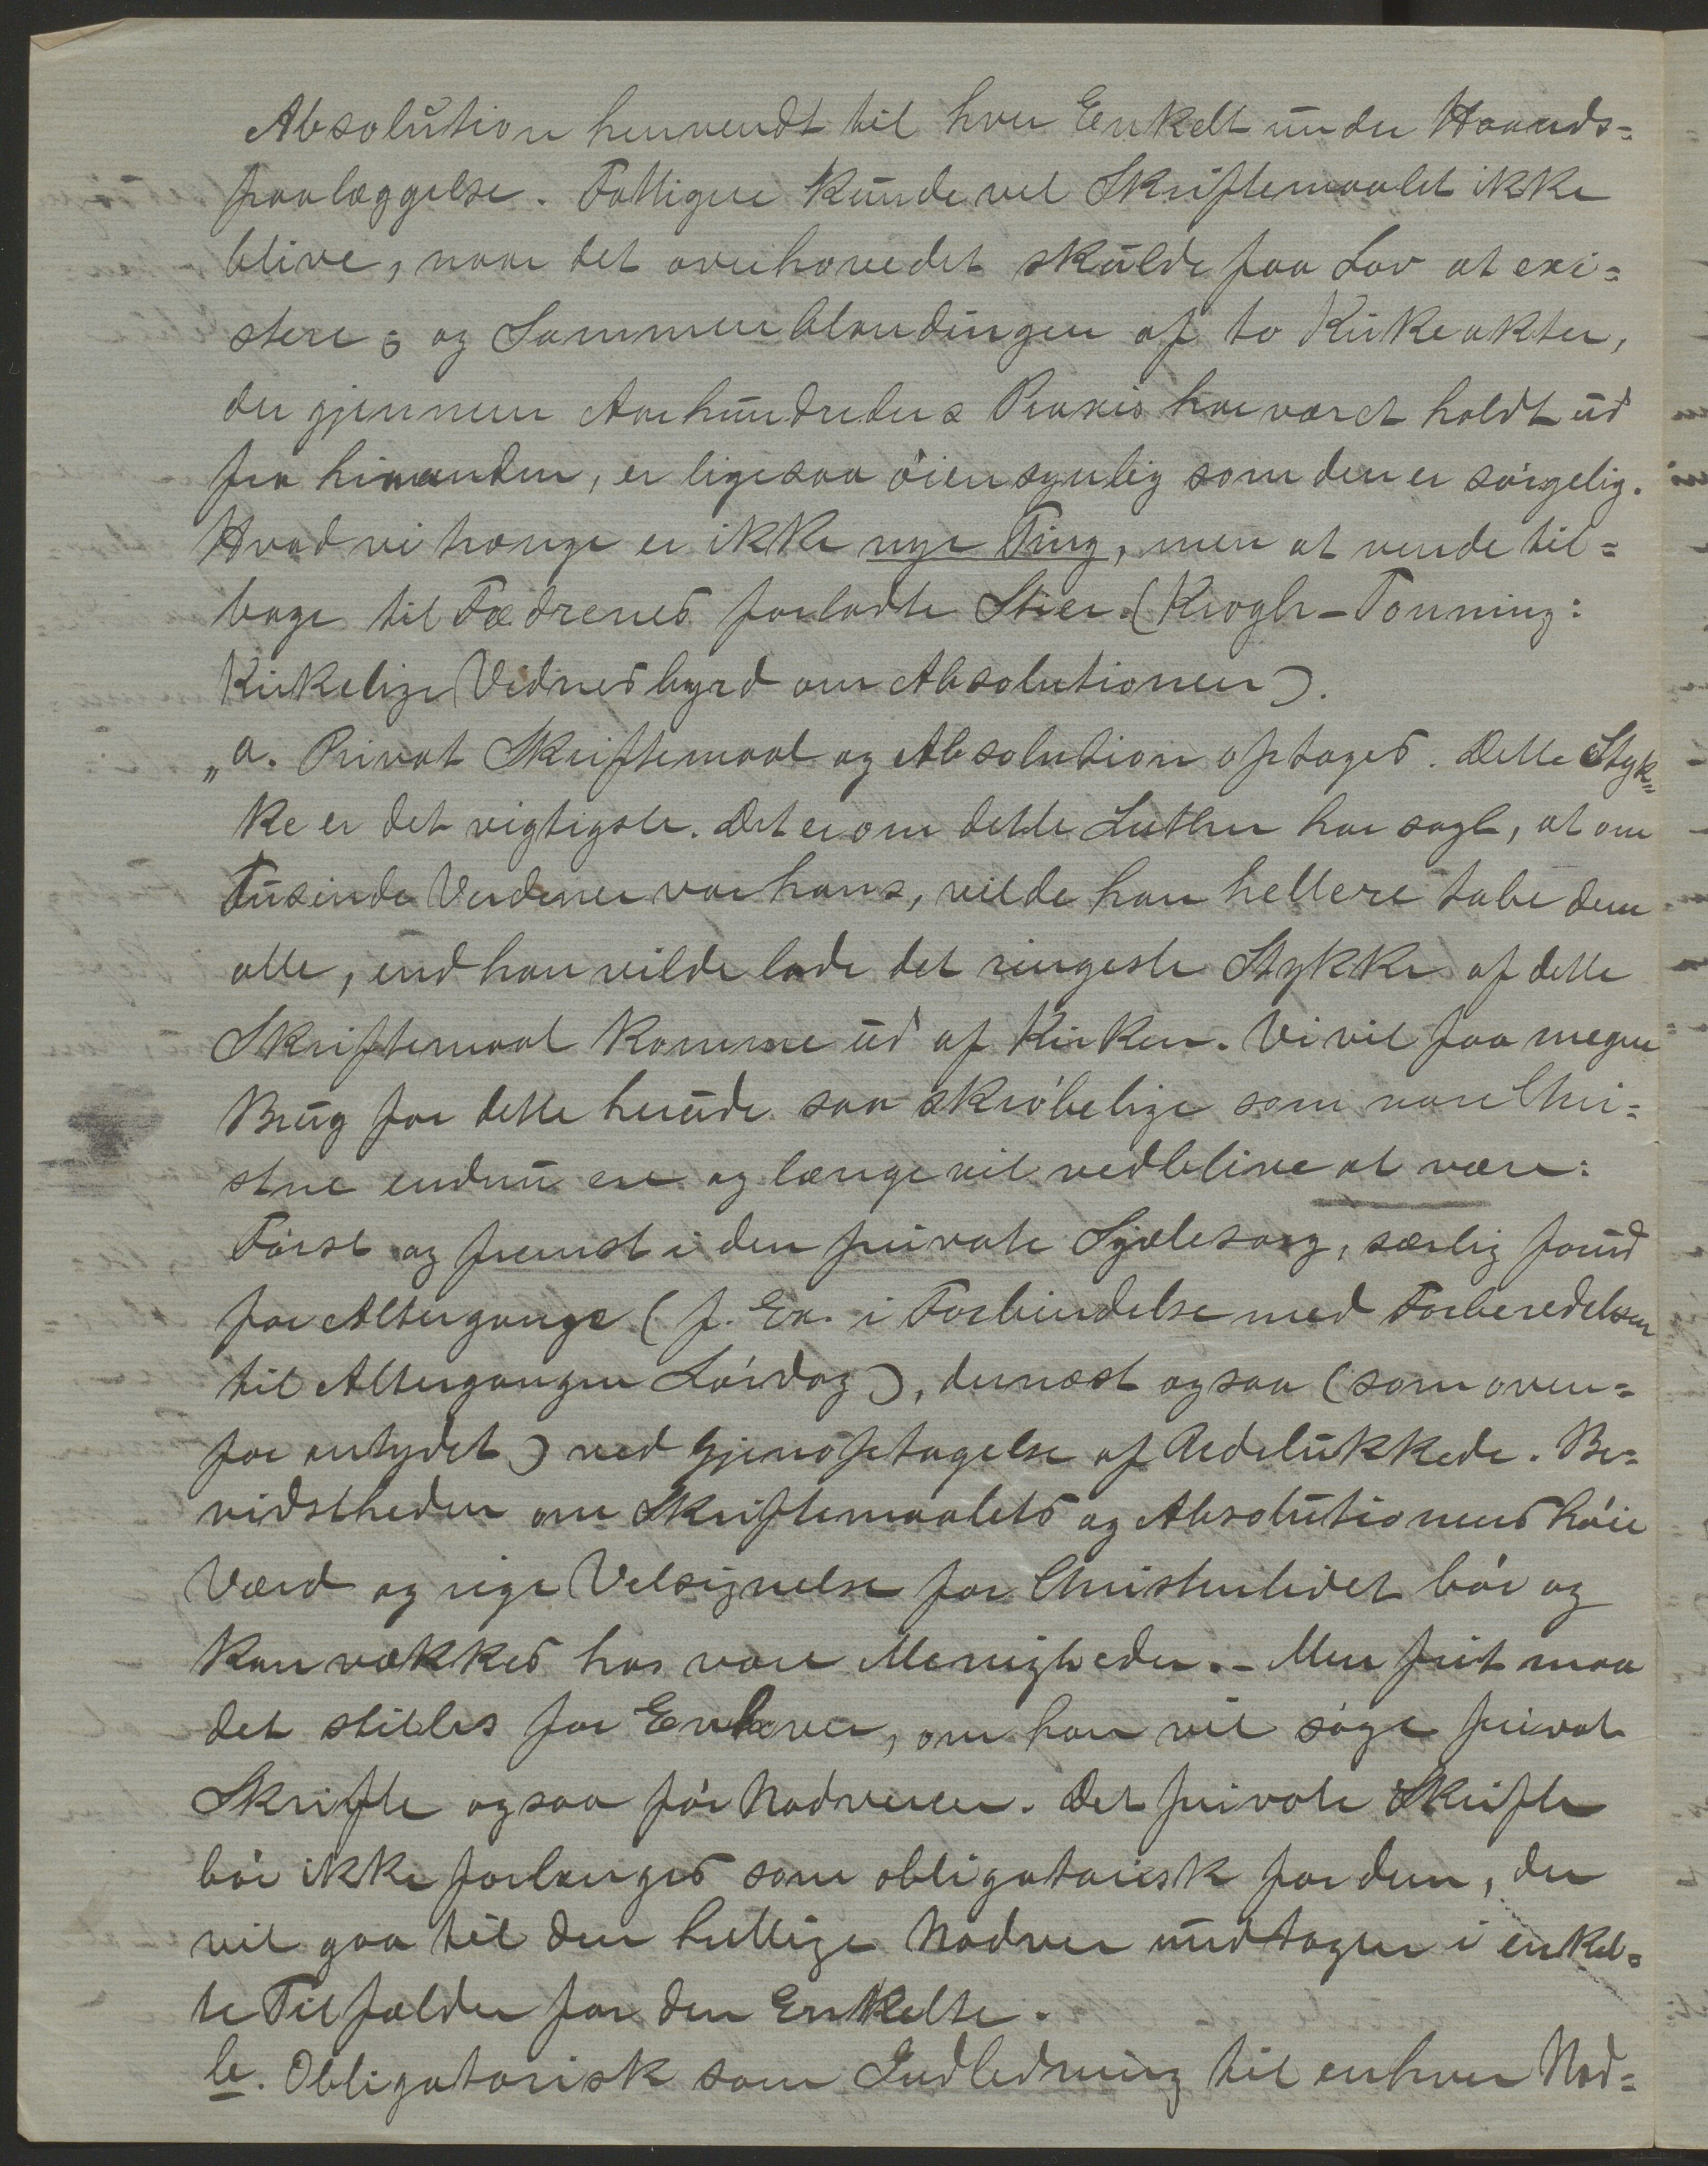 Absolution henvendt til hver Enkelt under Haands=
paalæggelse. Fattigere kunde vel Skriftemaalet ikke
blive, naar det overhovedet skulde faa Lov at exi=
stere; og Sammenblandingen af to Kirkeakter,
der gjennem Aarhundreders Praxis har været holdt ud
fra hinanden, er ligesaa öiensynlig som den er sörgelig.
Hvad vi trænge er ikke nye Ting, men at vende til=
bage til Fædrenes forladte Stier. (Krogh-Tonning:
Kirkelige Vidnesbyrd om Absolutionen).
„a. Privat Skriftemaal og Absolution optages. Dette Styk=
ke er det vigtigste. Det er om dette Luther har sagt, at om
Tusinde Verdener var hans, vilde han hellere tabe dem
alle, end han vilde lade det ringeste Stykke af dette
Skriftemaal komme ud af Kirken. Vi vil faa megen
Brug for dette herude saa skröbelige som vore Chri=
stne endnu ere og længe vil vedblive at være:
Först og fremst i den private Sjælesorg, særlig forud
for Altergange (f. Ex. i Forbindelse med Forberedelsen
til Altergangen Lördag), dernæst ogsaa (som oven=
for antydet) ved Gjenoptagelse af Udelukkede. Be=
vidstheden om Skriftemaalets og Absolutionens höie
Værd og rige Velsignelse for Christenlivet bör og
kan vækkes hos vore Menigheder. - Men frit maa
det stilles for Enhver, om han vil söge privat
Skrifte ogsaa för Nadveren. Det private Skrifte
bör ikke forlanges som obligatorisk for dem, der
vil gaa til den hellige Nadver undtagen i enkel=
te Tilfælder for den Enkelte.
b. Obligatorisk som Indledning til enhver Nad=